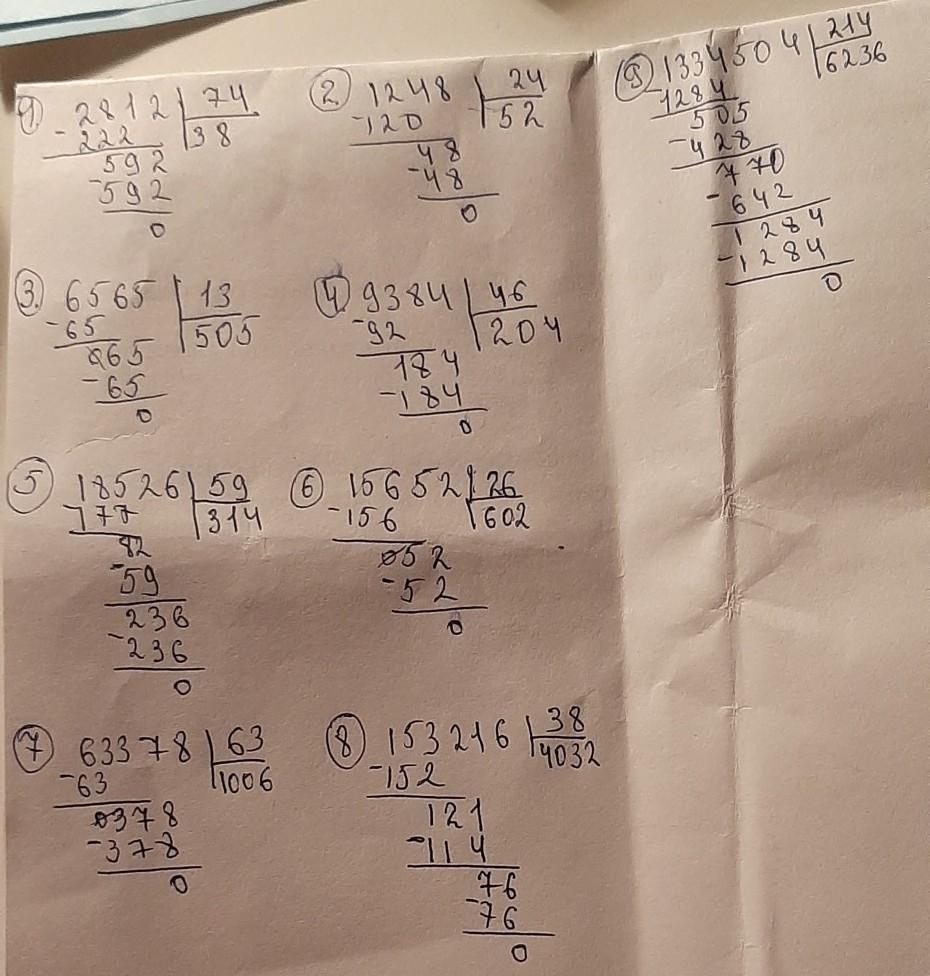 1. 2812 | 74
- 222 | 38
592
- 592
0
2. 1248 | 24
- 120 | 52
48
- 48
0
3. 6565 | 13
- 65 | 505
065
- 65
0
4. 9384 | 46
- 92 | 204
184
- 184
0
5 18526 | 59
- 177 | 314
82
- 59
236
- 236
0
6 15652 | 26
- 156 | 602
052
- 52
0
7 63378 | 63
- 63 | 1006
0378
- 378
0
8 153216 | 38
- 152 | 4032
121
- 114
76
- 76
0
9 1334504 | 214
- 1284 | 6236
505
- 428
770
- 642
1284
- 1284
0